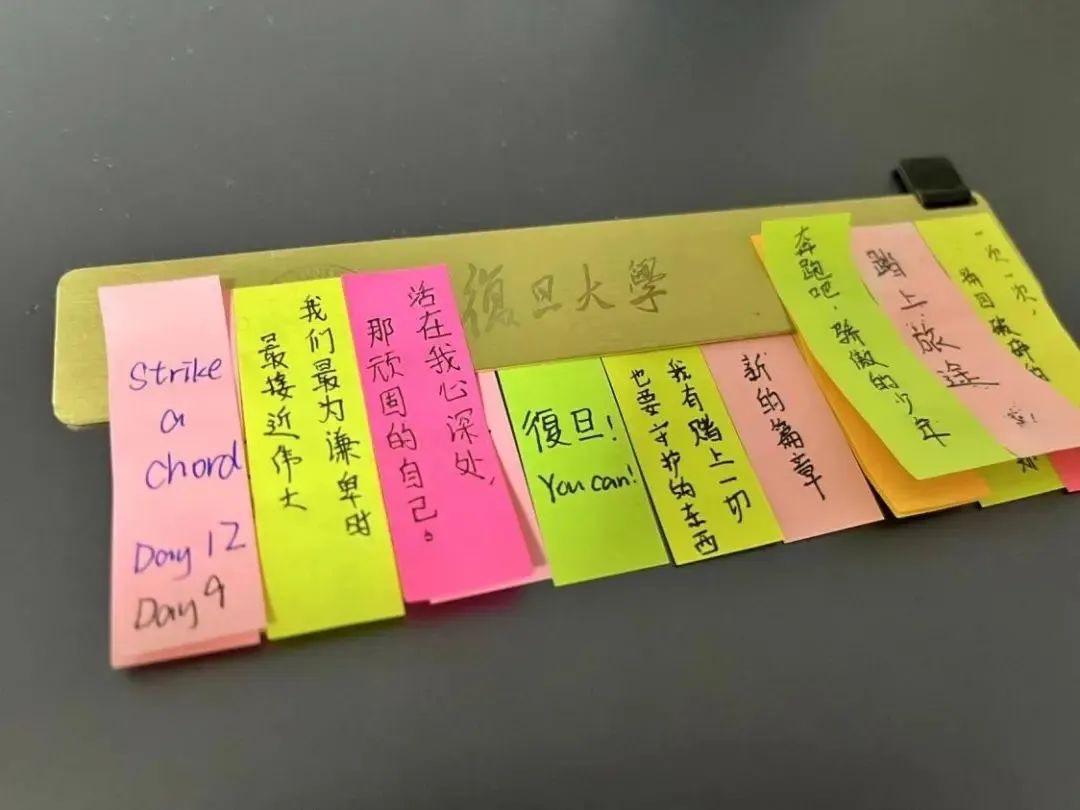 復旦大學
Strike
a
chord
Day 12
Day 9
我们最为谦卑时
最接近伟大
活在我心深处,
那顽固的自己。
復旦!
You can!
我有赌上一切
也要守护的东西
新的篇章
奔跑吧,骄傲的少年
踏上旅途
一次一次,